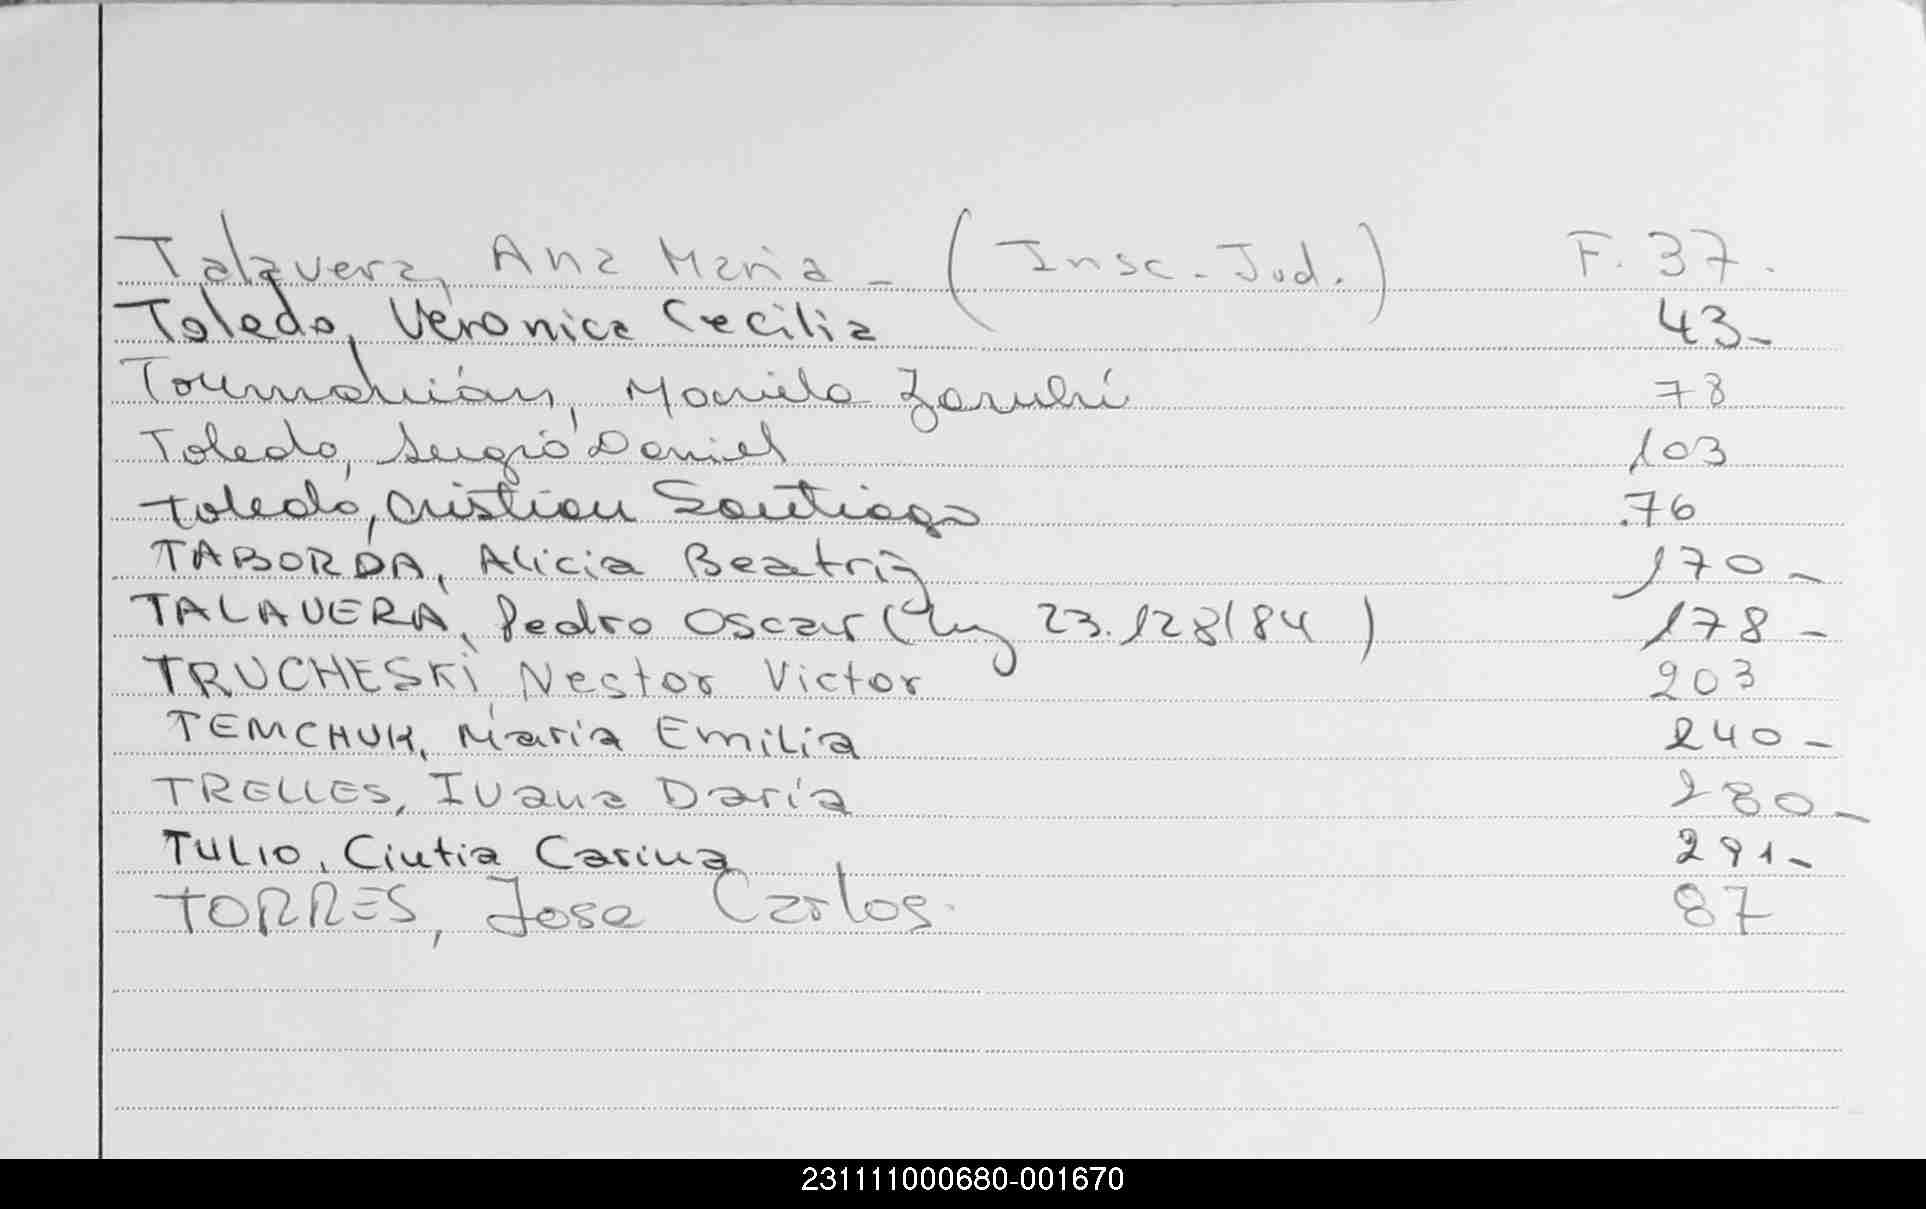 Talavera, Ana Maria - (Insc. Jud.) F. 37.
Toledo, Veronica Cecilia 43-
Tourmahuián, Mariela Zaruhí 78
Toledo, Sergio Daniel 103
Toledo, Cristian Santiago .76
TABORDA, Alicia Beatriz 170-
TALAVERA, Pedro Oscar (Ley 23.128/84) 178-
TRUCHESKI, Nestor Victor 203
TEMCHUK, Maria Emilia 240-
TRELLES, Ivana Daría 280-
TULIO, Cintia Carina 291-
TORRES, Jose Carlos. 87
231111000680-001670